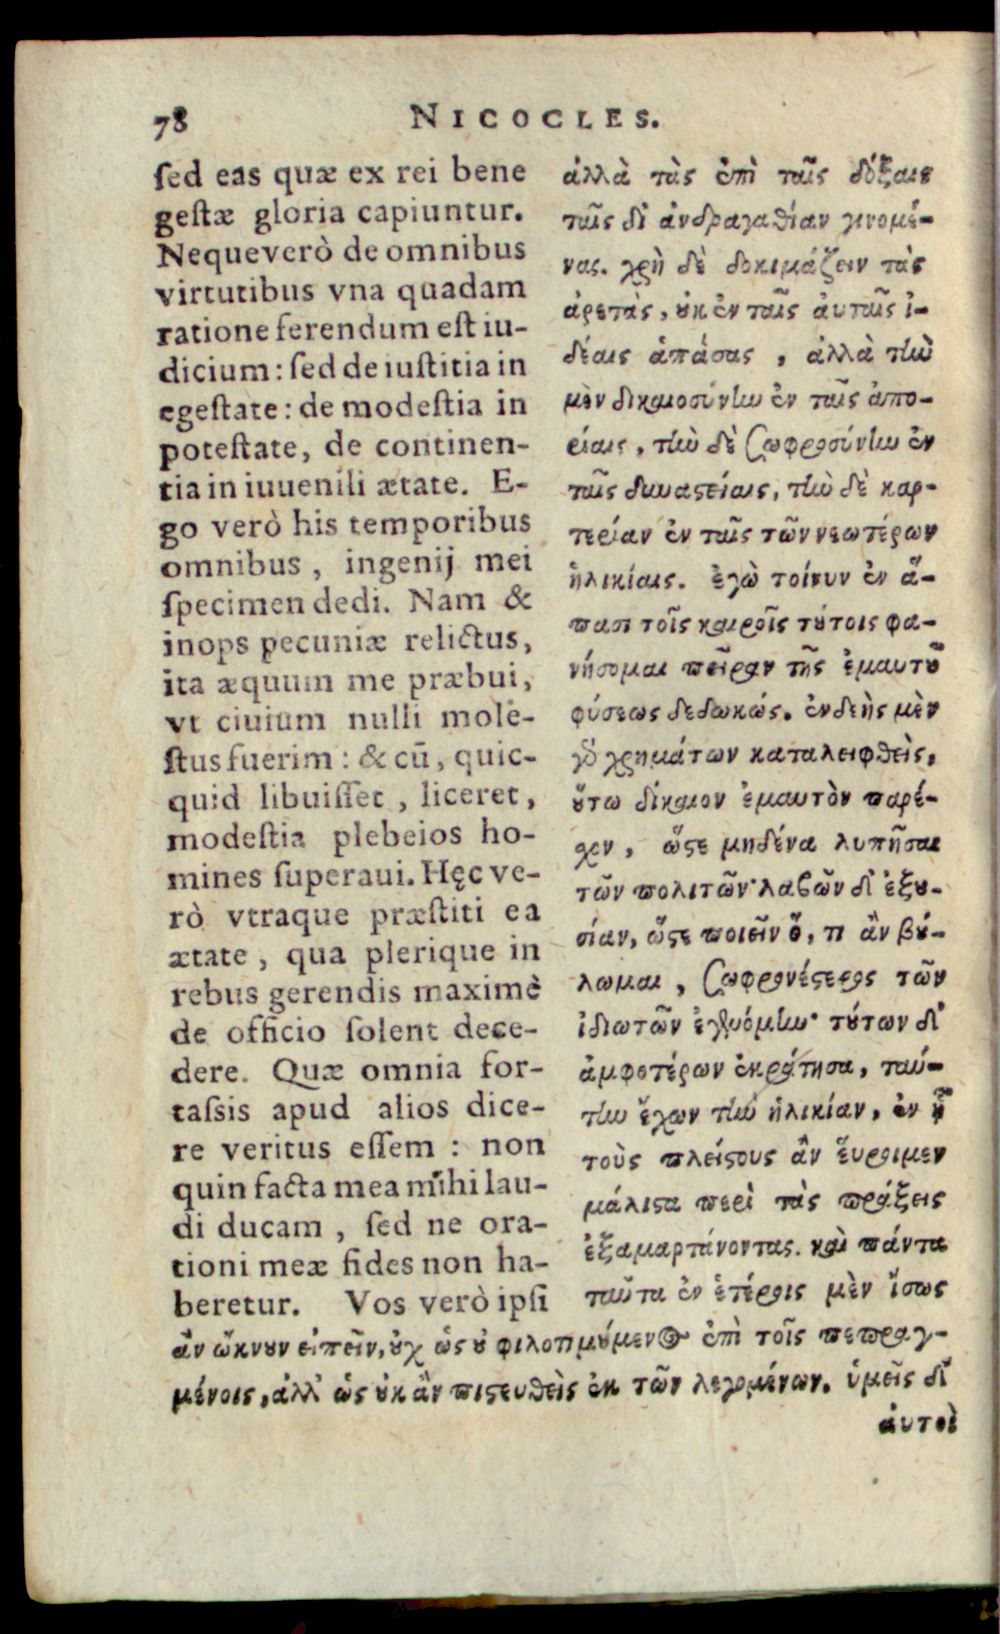 78
NICOCLES.
sed eas quæ ex rei bene
gestæ gloria capiuntur.
Neque verò de omnibus
virtutibus vna quadam
ratione ferendum est iu-
dicium: sed de iustitia in
egestate: de modestia in
potestate, de continen-
tia in iuuenili ætate. E-
go verò his temporibus
omnibus, ingenij mei
specimen dedi. Nam &
inops pecuniæ relictus,
ita æquum me præbui,
vt ciuium nulli mole-
stus fuerim: & cū, quic-
quid libuisset, liceret,
modestia plebeios ho-
mines superaui. Hęc ve-
rò vtraque præstiti ea
ætate, qua plerique in
rebus gerendis maximè
de officio solent dece-
dere. Quæ omnia for-
tassis apud alios dice-
re veritus essem: non
quin facta mea mihi lau-
di ducam, sed ne ora-
tioni meæ fides non ha-
beretur. Vos verò ipsi
ἀλλὰ τὰς ἐπὶ ταῖς δόξαις
ταῖς δι' ἀνδραγαθίαν γινομέ-
νας. χρὴ δὲ δοκιμάζειν τὰς
ἀρετὰς, ȣκ ἐν ταῖς ἀυταῖς ἰ-
δέαις ἁπάσας, ἀλλὰ τὴν
μὲν δικαιοσύνην ἐν ταῖς ἀπο-
ρίαις, τὴν δὲ σωφροσύνην ἐν
ταῖς δυναϛείαις, τὴν δὲ καρ-
τερίαν ἐν ταῖς τῶν νεωτέρων
ἡλικίαις. ἐγὼ τοίνυν ἐν ἅ-
πασι τοῖς καιροῖς τȣ́τοις φα-
νήσομαι πεῖραν τῆς ἐμαυτȣ͂
φύσεως δεδωκώς. ἐνδεὴς μὲν
γὸ χρημάτων καταλειφθεὶς,
ȣ̔́τω δίκαιον ἐμαυτὸν παρέ-
χον, ὥϛε μηδένα λυπῆσαι
τῶν πολιτῶν· λαβῶν δ' ἐξȣ-
σίαν, ὥϛε ποιεῖν ὅ, τι ἂν βȣ́-
λωμαι, σωφρονέϛερος τῶν
ἰδιωτῶν ἐγενόμην· τȣ́των δ'
ἀμφοτέρων ἐκράτησα, ταύ-
την ἔχων τὴν ἡλικίαν, ἐν ᾗ
τοὺς πλείϛους ἂν ἕυροιμεν
μάλιϛα περὶ τὰς πράξεις
ἐξαμαρτάνοντας. καὶ πάντα
ταῦτα ἐν ἑτέροις μὲν ἴσως
ἂν ὤκνȣν εἰπεῖν, ȣ̓χ ὡς ȣ̓ φιλοτιμȣ́μενος ἐπὶ τοῖς πεπραγ-
μένοις, ἀλλ' ὡς ȣ̓κ ἂν πιϛευθεὶς ἐκ τῶν λεγομένων. ὑμεῖς δ'
ἀυτοὶ